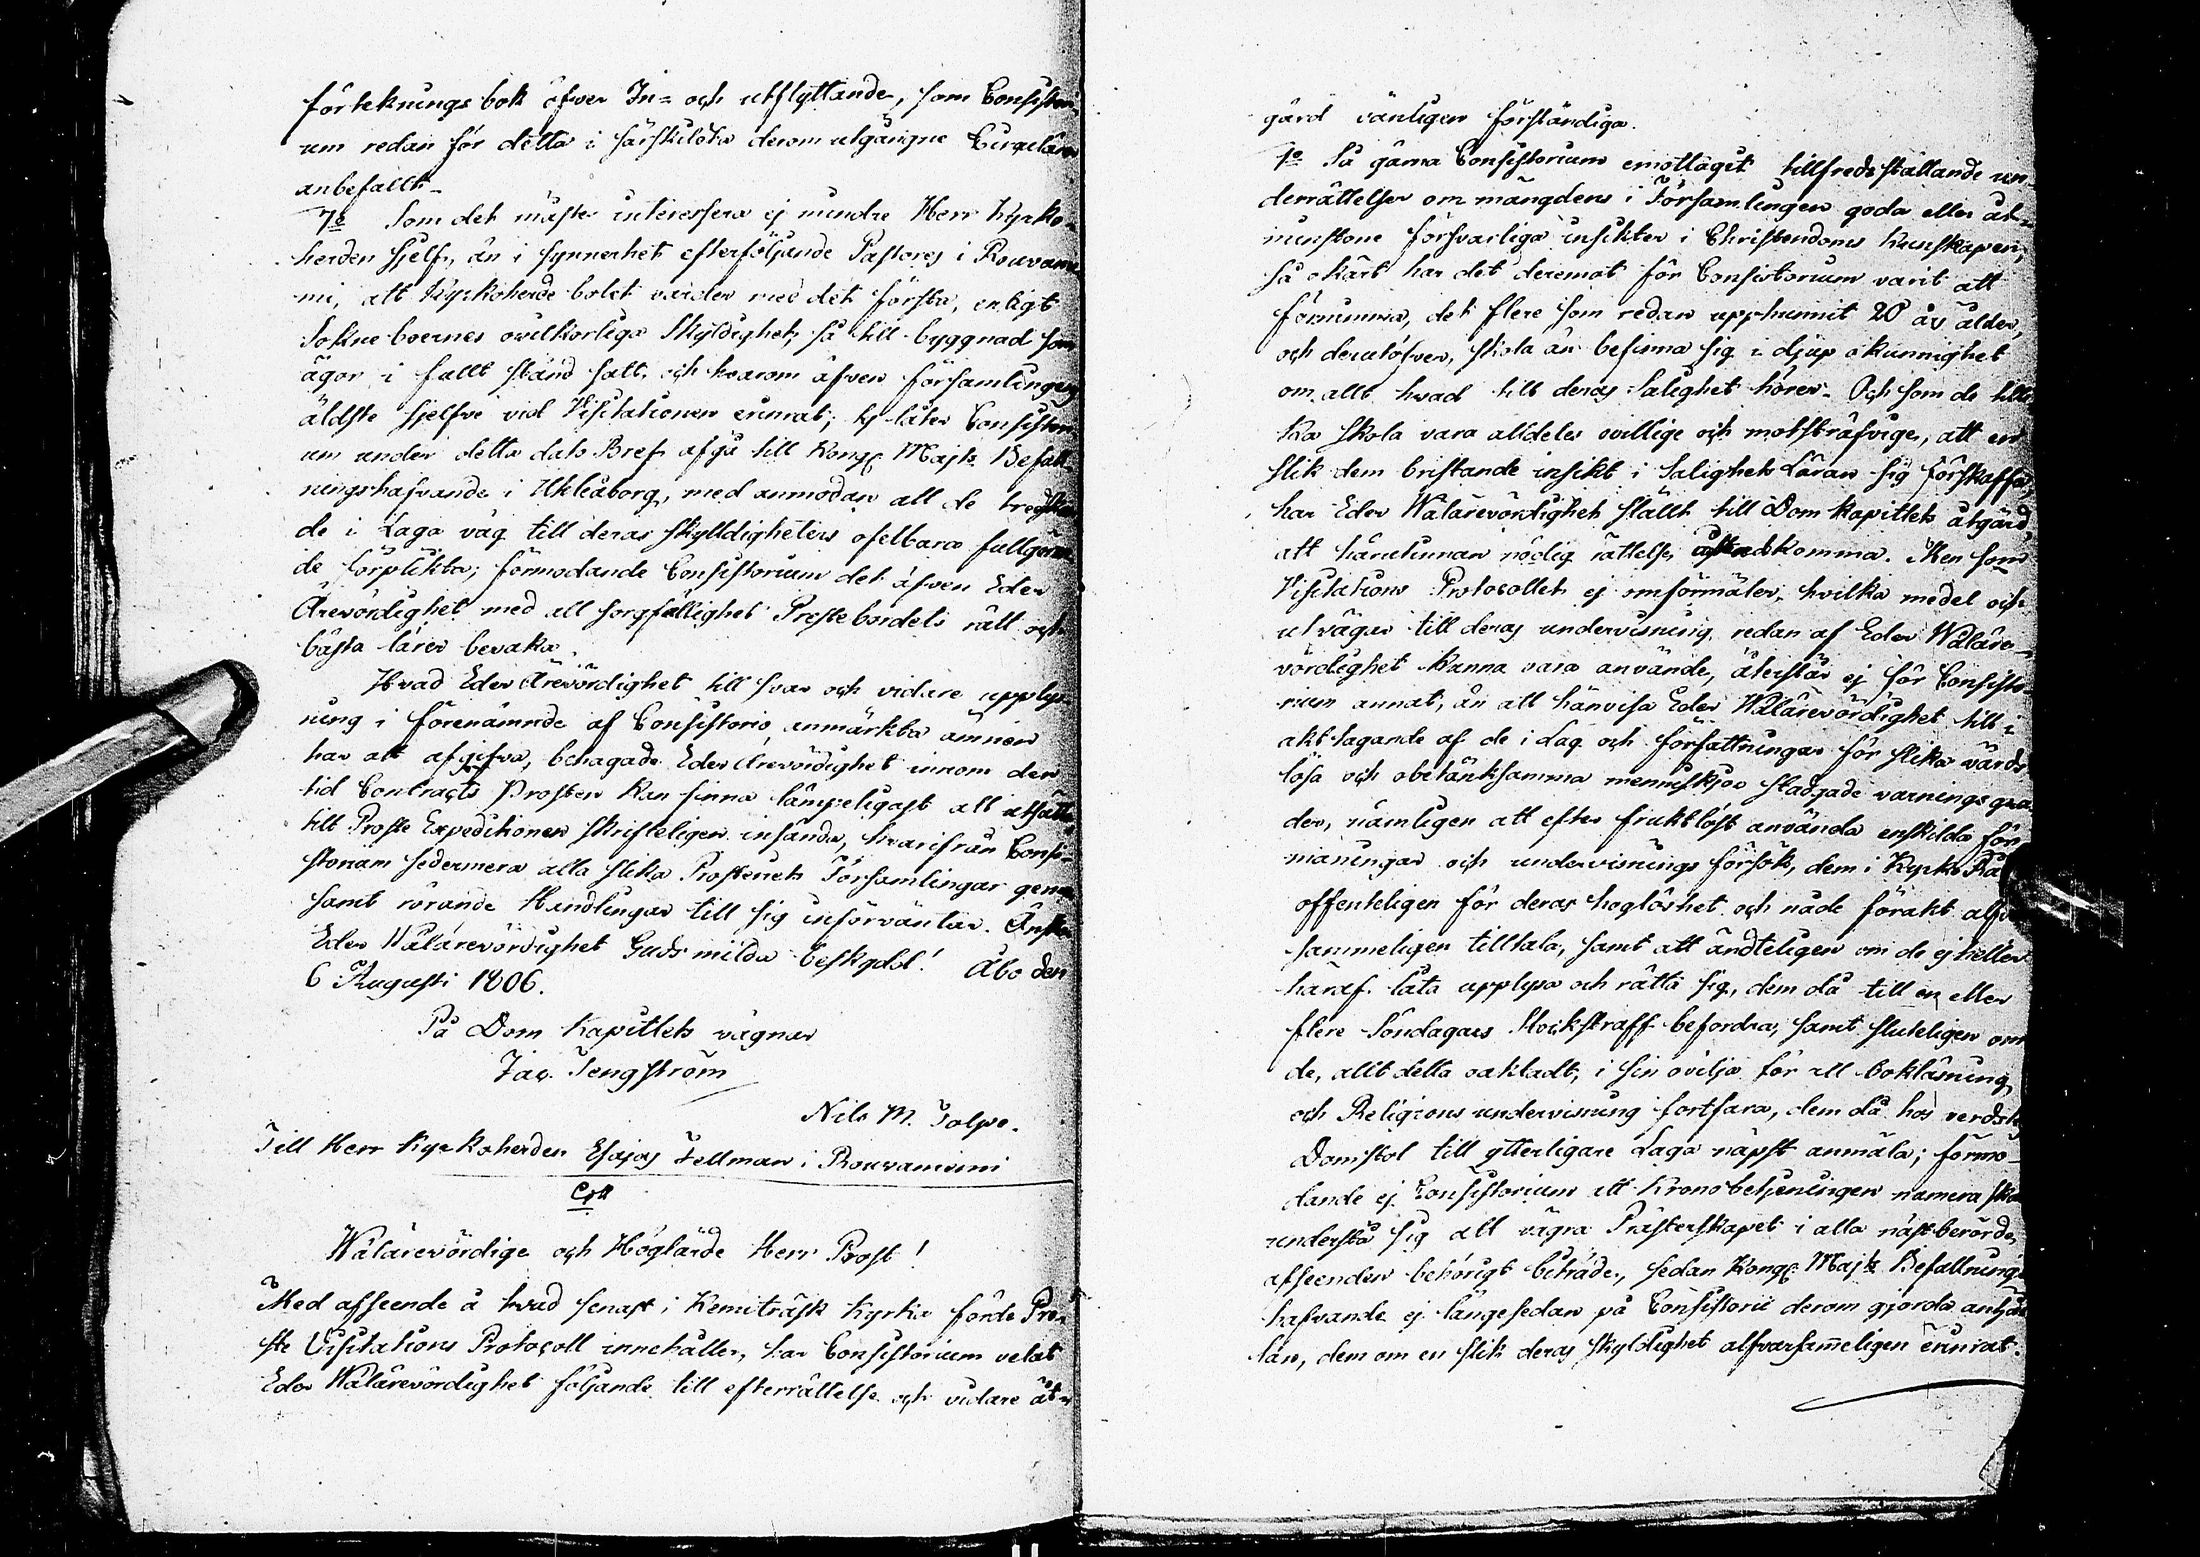 förteknings bok öfwer In= och utflyttande, som Consistori-
um redan för detta i särskildta derom utgångne Circulairer
anbefallt.
7o Som det måste interessera ej mindre Herr Kyrko-
herden sjelf, än i synnerhet efterföljande Pastores i Rouvanie-
mi, att Kyrkoherde bolet varder med det första, enligt
Sokne boernes ovilkorliga Skyldighet, så till byggnad som
ägor i fullt stånd satt, och hvarom äfven församlingens
äldste sjelfve vid Visitationen erinrat; ty låter Consistori-
um under detta dato Bref afgå till Kongl Majts Befall-
ningshafvande i Uhleåborg, med anmodan att de tredskan-
de i Laga väg till deras skylldigheters ofelbara fullgöran-
de förplikta; förmodande Consistorium det äfven Eder
Ärevördighet med all sorgfällighet Prestebordets rätt och
bästa lärer bevaka.
Hvad Eder Ärevördighet till svar och vidare upplys-
ning i förenämnde af Consistorio anmärkta ämnen
har att afgifva, behagade Eder Ärevördighet innom den
tid Contracts Prosten kan finna lämpeligast att utsätta
till Proste Expeditionen skrifteligen insända, hvarifrån Consi-
storium sedermera alla slika Prosteriets Församlingar gemen-
samt rörande Handlingar till sig införväntar. Önskar
Eder Wälärevördighet Guds milda beskydd! Åbo den
6 Augusti 1806.
På Dom Kapitlets vägnar
Jac. Tengström
Nils M. Tolpo.
Till Herr Kyrkoherden Esajas Fellman i Rouvaniemi
Wälärevördige och Höglärde Herr Prost!
Med afseende å hvad senast i Kemiträsk Kyrka förde Pro-
ste Visitations Protocoll innehåller, har Consistorium velat
Eder Wälärevördighet följande till efterrättelse och vidare åt-
gärd vänligen förständiga.
1o Så gärna Consistorium emottagit tillfredsställande un-
derrättelser om mängdens i Församlingen goda eller åt-
minstone försvarliga insikter i Christendoms Kunskapen,
så okärt har det deremot för Consistorium varit att
förnimma, det flere som redan upphunnit 20 års ålder,
och derutöfver, skola än befinna sig i djup okunnighet
om allt hvad till deras Salighet hörer. Och som de till-
ka skola vara alldeles ovillige och motsträfvige, att en
slik dem bristande insikt i Salighets Läran sig förskaffa,
har Eder Wälärevördighet ställt till Dom Kapitlets åtgärd
att härutinnan nödig rättelse åstadkomma. Men som
Visitations Protocollet ej omförmäler, hvilka medel och
utvägar till deras undervisning redan af Eder Wäläre-
vördighet kunna vara använde, återstår ej för Consisto-
rium annat, än att hänvisa Eder Wälärevördighet till i
akttagande af de i Lag och författningar för slika värds-
lösa och obetänksamma menniskjor stadgade varnings gra-
der, nämligen att efter fruktlöst använda enskilda för-
maningar och undervisnings försök, dem i Kyrko Råd
offenteligen för deras hoglöshet och nåde förakt alfvar-
sammeligen tilltala, samt att ändteligen om de ej heller
häraf låta upplysa och rätta sig, dem då till en eller
flere Söndagars Stockstraff befordra, samt sluteligen om
de, allt detta oaktadt, i sin ovilja för all bokläsning
och Religions undervisning fortfara, dem då hos verdslig
Domstol till ytterligare Laga näpst anmäla; förmo-
dande ej Consistorium att Kronobetjeningen numera skall
understå sig att vägra Prästerskapet i alla näst berörde
afseenden behörigt biträde, sedan Kongl Majts Befallnings
hafvande ej längesedan på Consistorii derom gjorda anhål-
lan, dem om en slik deras skyldighet alfvarsammeligen erinrat.